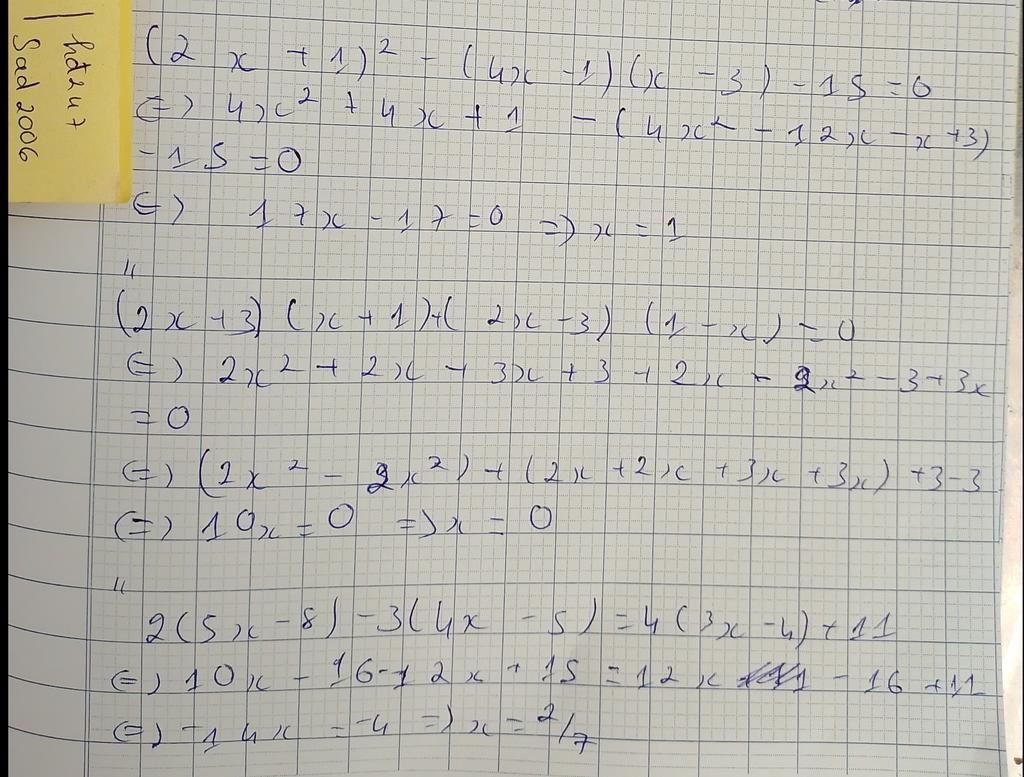 (2x + 1)² - (4x - 1)(x - 3) - 15 = 0
⇔ 4x² + 4x + 1 - (4x² - 12x - x + 3)
- 15 = 0
⇔ 17x - 17 = 0 ⇒ x = 1
"
(2x + 3)(x + 1) + (2x - 3)(1 - x) = 0
⇔ 2x² + 2x + 3x + 3 + 2x - 2x² - 3 + 3x
= 0
⇔ (2x² - 2x²) + (2x + 2x + 3x + 3x) + 3 - 3
⇔ 10x = 0 ⇒ x = 0
"
2(5x - 8) - 3(4x - 5) = 4(3x - 4) + 11
⇔ 10x - 16 - 12x + 15 = 12x - 16 + 11
⇔ -14x = -4 ⇒ x = 2/7
Sad 2006